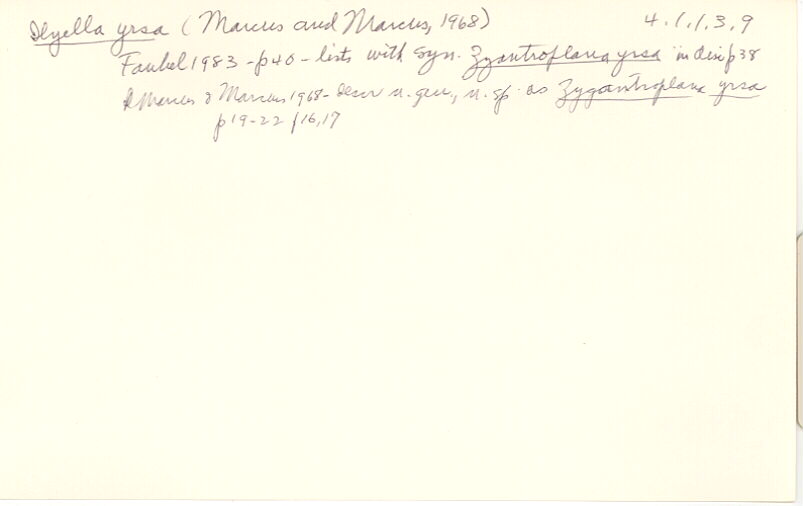 Ilyella yrsa (Marcus and Marcus, 1968) 4.1.1.3.9
Faubel 1983 - p40 - lists with syn. Zygantroplana yrsa in disc p38
& Marcus & Marcus 1968 - descr n. gen., n. sp. as Zygantroplana yrsa
p19-22 f16,17